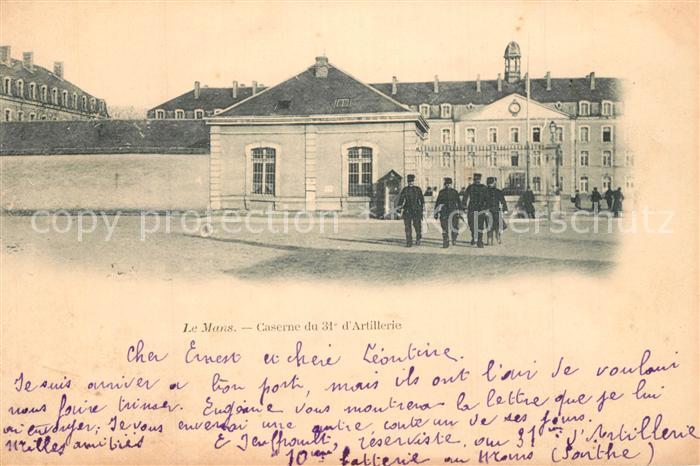 copyright protection collection Posters.cz
Le Mans. — Caserne du 31e d'Artillerie
Cher Ernest et chère Léontine.
Je suis arriver a bon port, mais ils ont l'air de vouloir
nous faire trimer. Eugénie vous montrera la lettre que je lui
ai envoyer; Je vous enverai une autre carte un de ses jours.
Milles amitiés E réserviste, au 31em d'Artillerie
10em batterie au Mans (Sarthe)